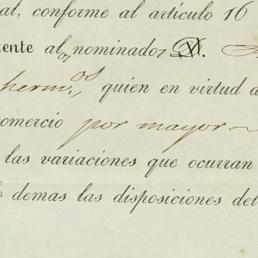 al, conforme al artículo 16
tente al nominado
hermos, quien en virtud d
omercio por mayor
las variaciones que ocurran
demas las disposiciones det